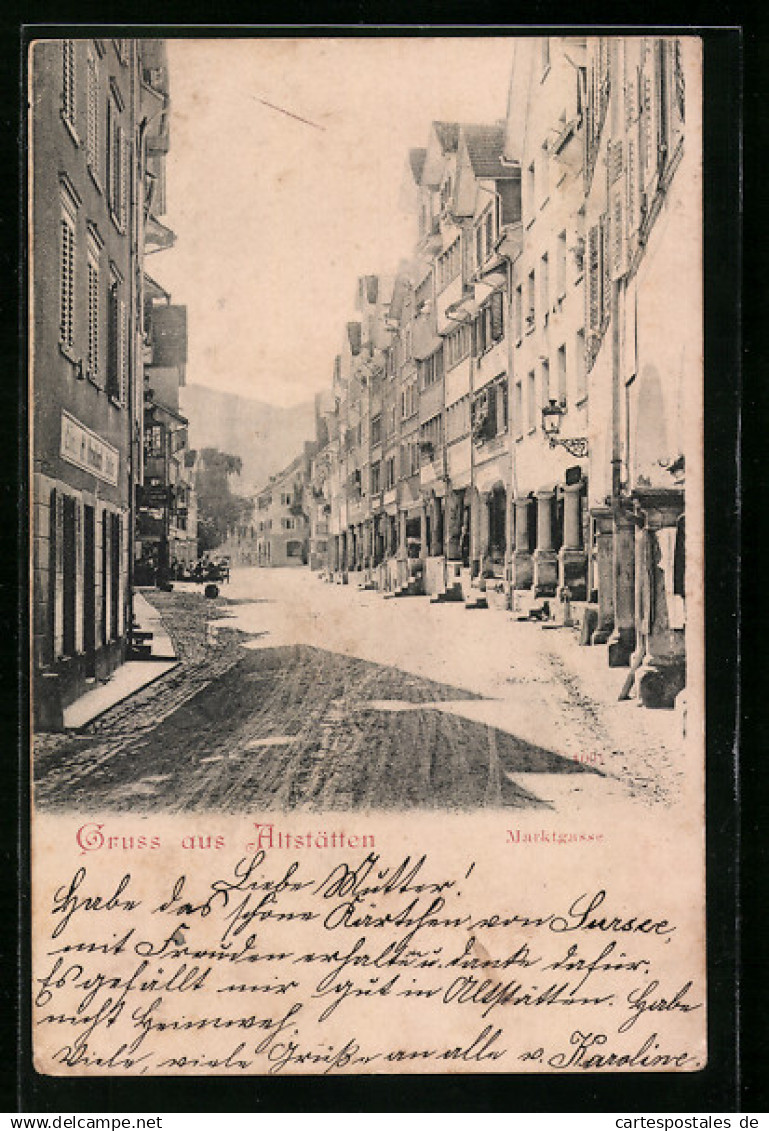 Gruss aus Altstätten
Marktgasse
Liebe Mutter!
Habe das schöne Kärtchen von Sursee,
mit Freuden erhalten u. danke dafür.
Es gefällt mir gut in Altstätten. Habe
nicht Heimweh.
Viele, viele Grüße an alle v. Karoline.
cartespostales de